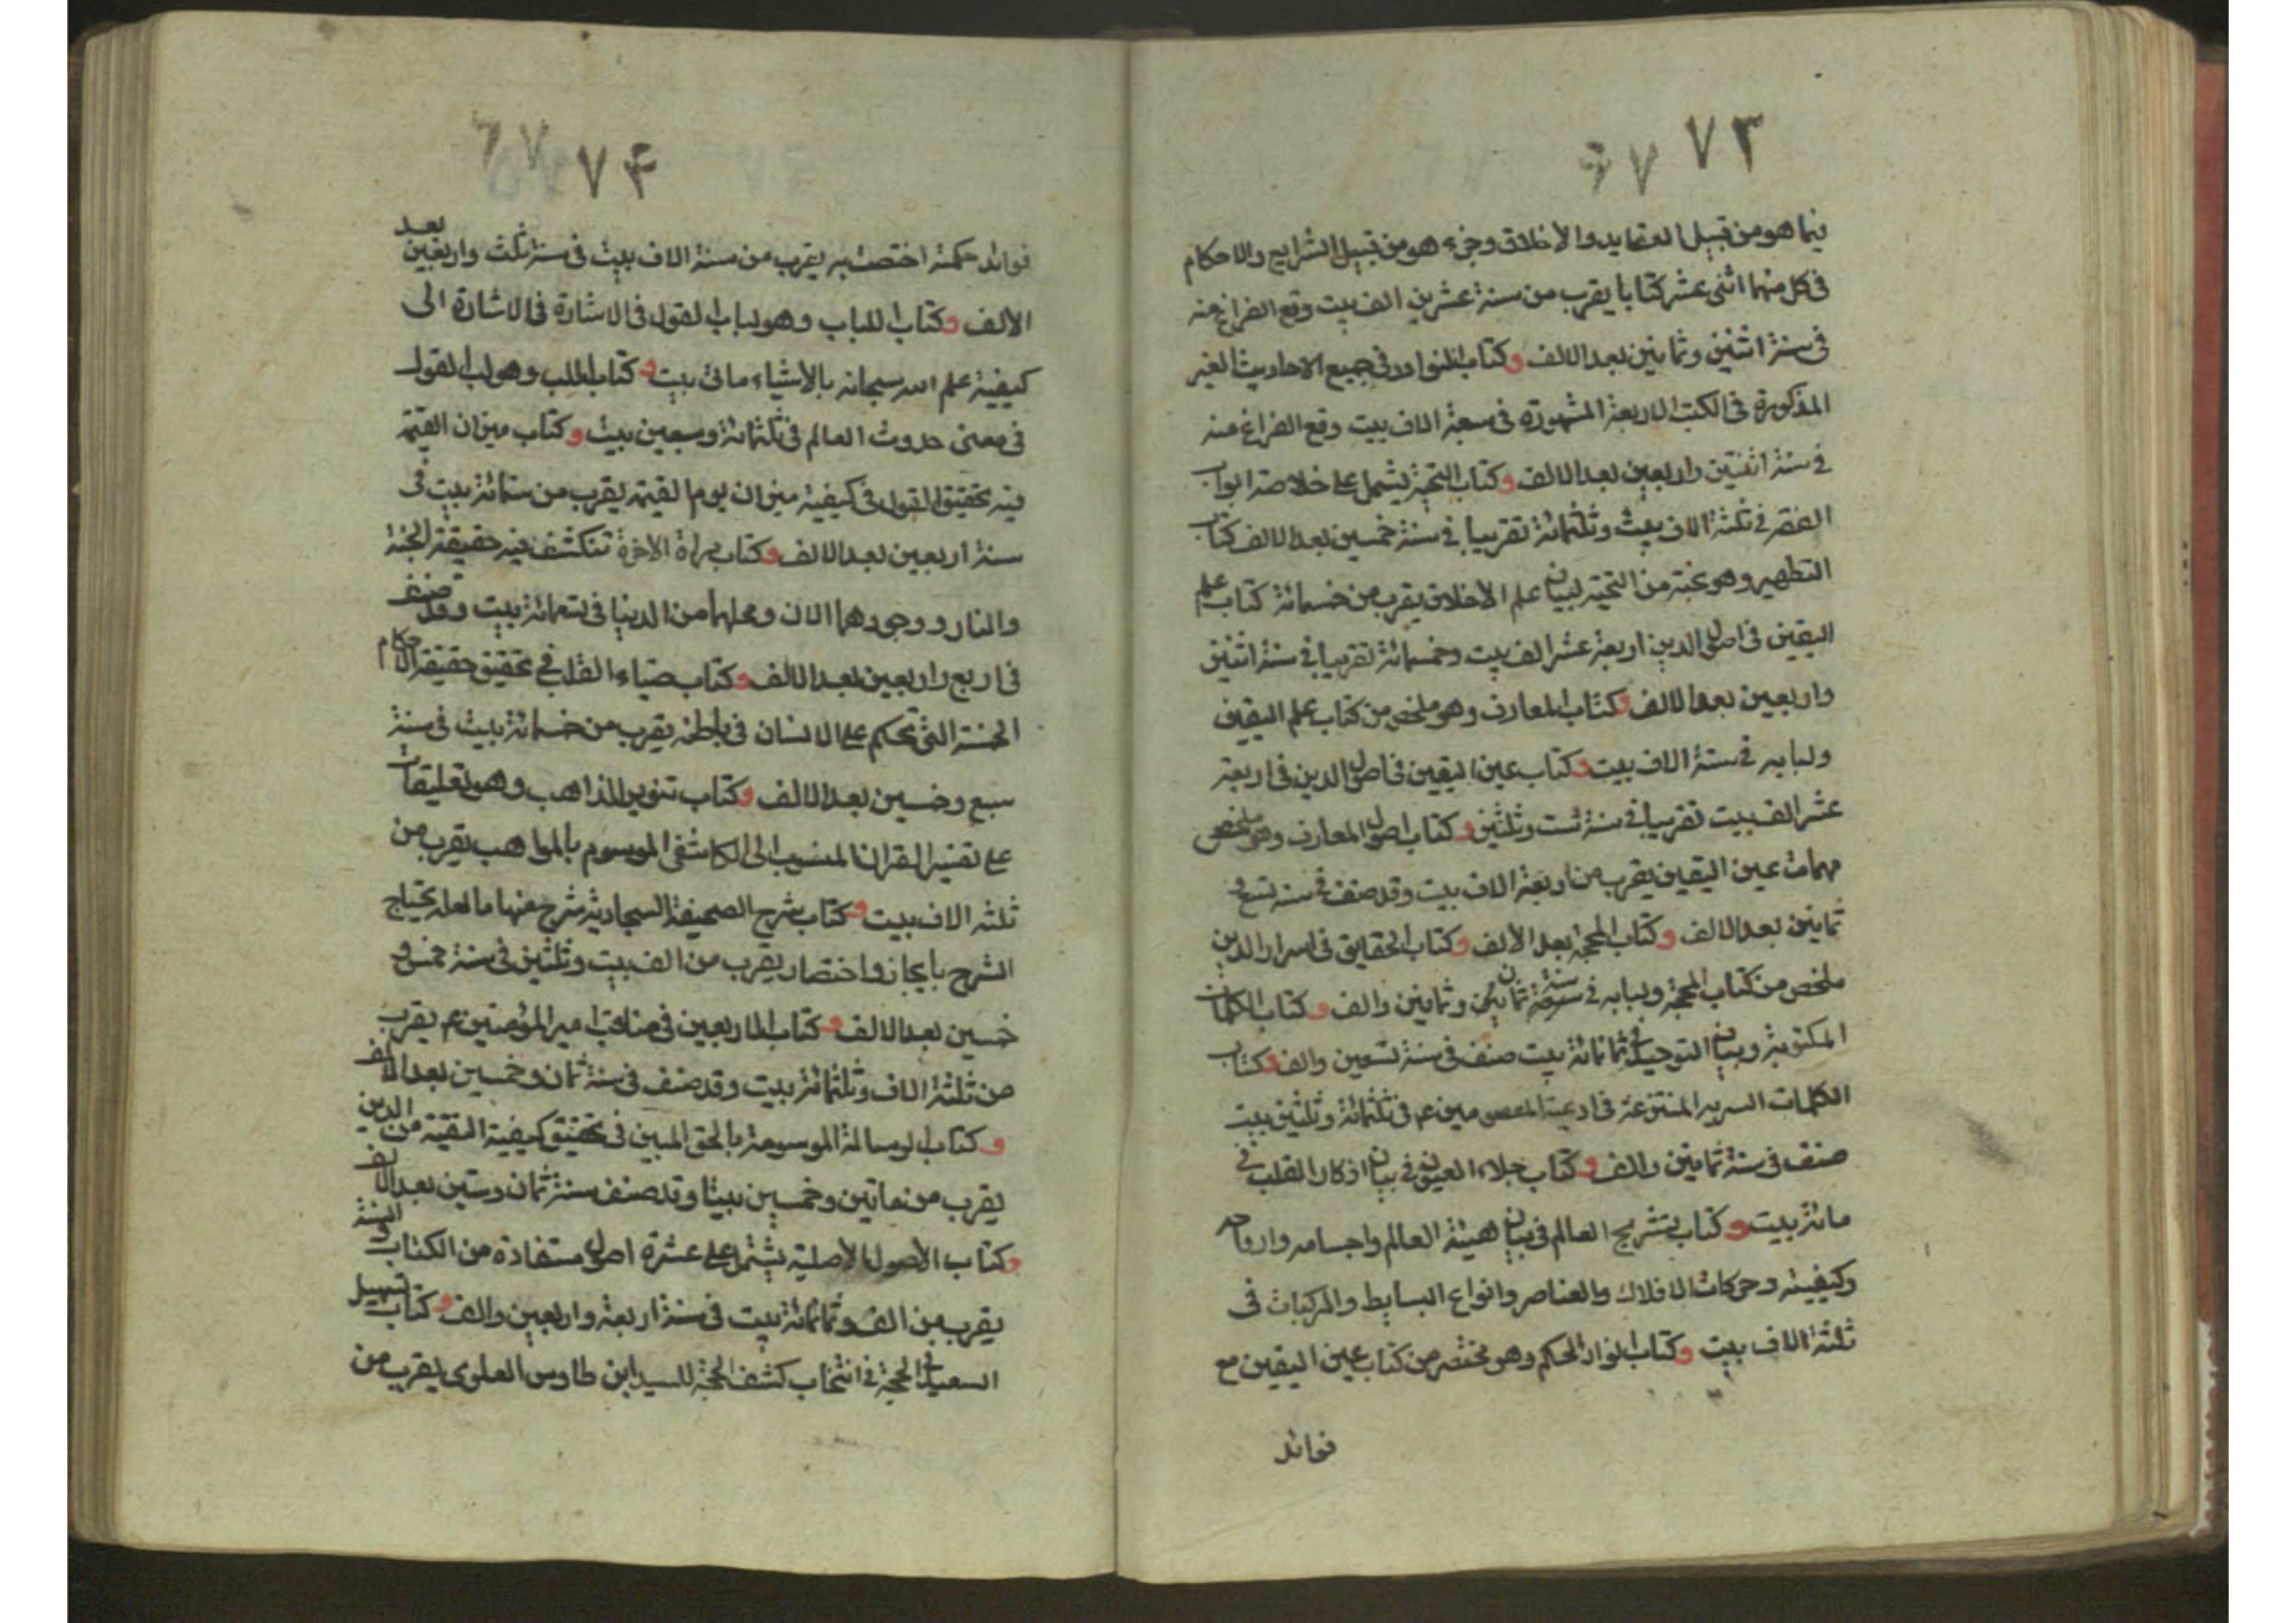 ٧٣ ٧٦
فيما هو من قبيل العقايد والاخلاق وجزء هو من قبيل الشرايع والاحكام
في كل منهما اثنى عشر كتابا يقرب من ستة عشرين الف بيت وقع الفراغ منه
في سنة اثنين وثمانين بعد الالف وكتاب النوادر في جميع الاحاديث الغير
المذكورة في الكتب الاربعة المشهورة في سبعة الاف بيت وقع الفراغ منه
في سنة اثنتين واربعين بعد الالف وكتاب النخبة يشمل على خلاصة ابواب
الفقه في ثلثة الاف بيت وثلثمائة تقريبا في سنة خمسين بعد الالف كتاب
التطهير وهو نخبة من النخبة لبيان علم الاخلاق يقرب من خمسمائة كتاب علم
اليقين في اصول الدين اربعة عشر الف بيت وخمسمائة تقريبا في سنة اثنين
واربعين بعد الالف وكتاب المعارف وهو ملخص من كتاب علم اليقين
ولبابه في ستة الاف بيت وكتاب عين اليقين في اصول الدين في اربعة
عشر الف بيت تقريبا في سنة ست وثلثين وكتاب اصول المعارف وهو ملخص
مهمات عين اليقين يقرب من اربعة الاف بيت وقد صنف في سنة تسع و
ثمانين بعد الالف وكتاب المحجة بعد الألف وكتاب الحقايق في اسرار الدين
ملخص من كتاب المحجة ولبابه في سنة ثمان وثمانين والف وكتاب الكلمات
المكنونة وبيان التوحيد في ثمانمائة بيت صنف في سنة تسعين والف وكتاب
الكلمات السريه المنتزعة في ادعية المعصومين عم في ثلثمائة وثلثين بيت
صنف في سنة ثمانين والف وكتاب جلاء العيون في بيان اذكار القلب في
مائة بيت وكتاب تشريح العالم في بيان هيئة العالم واجسامه وارواحه
وكيفيته وحركات الافلاك والعناصر وانواع البسايط والمركبات في
ثلثة الاف بيت وكتاب انوار الحكم وهو مختصر من كتاب عين اليقين مع
فوائد
٧۴ ٧٦
فوائد حكمة اختصت به يقرب من ستة الاف بيت في سنة ثلث واربعين بعد
الالف وكتاب اللباب وهو لباب القول في الاشارة في الاشارة الى
كيفية علم الله سبحانه بالأشياء مائى بيت وكتاب اللب وهو لب القول
في معنى حدوث العالم في ثلثمائة وسبعين بيت وكتاب ميزان القيمة
فيه تحقيق القول في كيفية ميزان يوم القيمة يقرب من ستمائة بيت في
سنة اربعين بعد الالف وكتاب مراة الاخرة تنكشف فيه حقيقة الجنة
والنار ووجودهما الان ومحلهما من الدنيا في تسعمائة بيت وقد صنف
في اربع واربعين بعد الالف وكتاب ضياء القلب في تحقيق حقيقة الحكام
الخمسة التي تحكم على الانسان في باطنه يقرب من خمسمائة بيت في سنة
سبع وخمسين بعد الالف وكتاب تنوير المذاهب وهو تعليقات
على تفسير القران المنسوب الى الكاشفى الموسوم بالمواهب يقرب من
ثلثه الاف بيت وكتاب شرح الصحيفة السجادية شرح منها ما لعله يحتاج
الشرح بايجاز واختصار يقرب من الف بيت وثلثين في سنة خمس و
خمسين بعد الالف وكتاب الاربعين في مناقب امير المؤمنين عم يقرب
من ثلثة الاف وثلثمائة بيت وقد صنف في سنة ثمان وخمسين بعد الالف
وكتاب الرسالة الموسومة بالحق المبين في تحقيق كيفية التفقه من الدين
يقرب من ماتين وخمسين بيتا وقد صنف سنة ثمان وستين بعد الالف
وكتاب الأصول الأصلية يشتمل على عشرة اصول مستفادة من الكتاب والسنة
يقرب من الف وثمانمائة بيت في سنة اربعة واربعين والف وكتاب تسهيل
السبيل في الحجة في انتخاب كشف المحجة للسيد ابن طاوس العلوى يقرب من